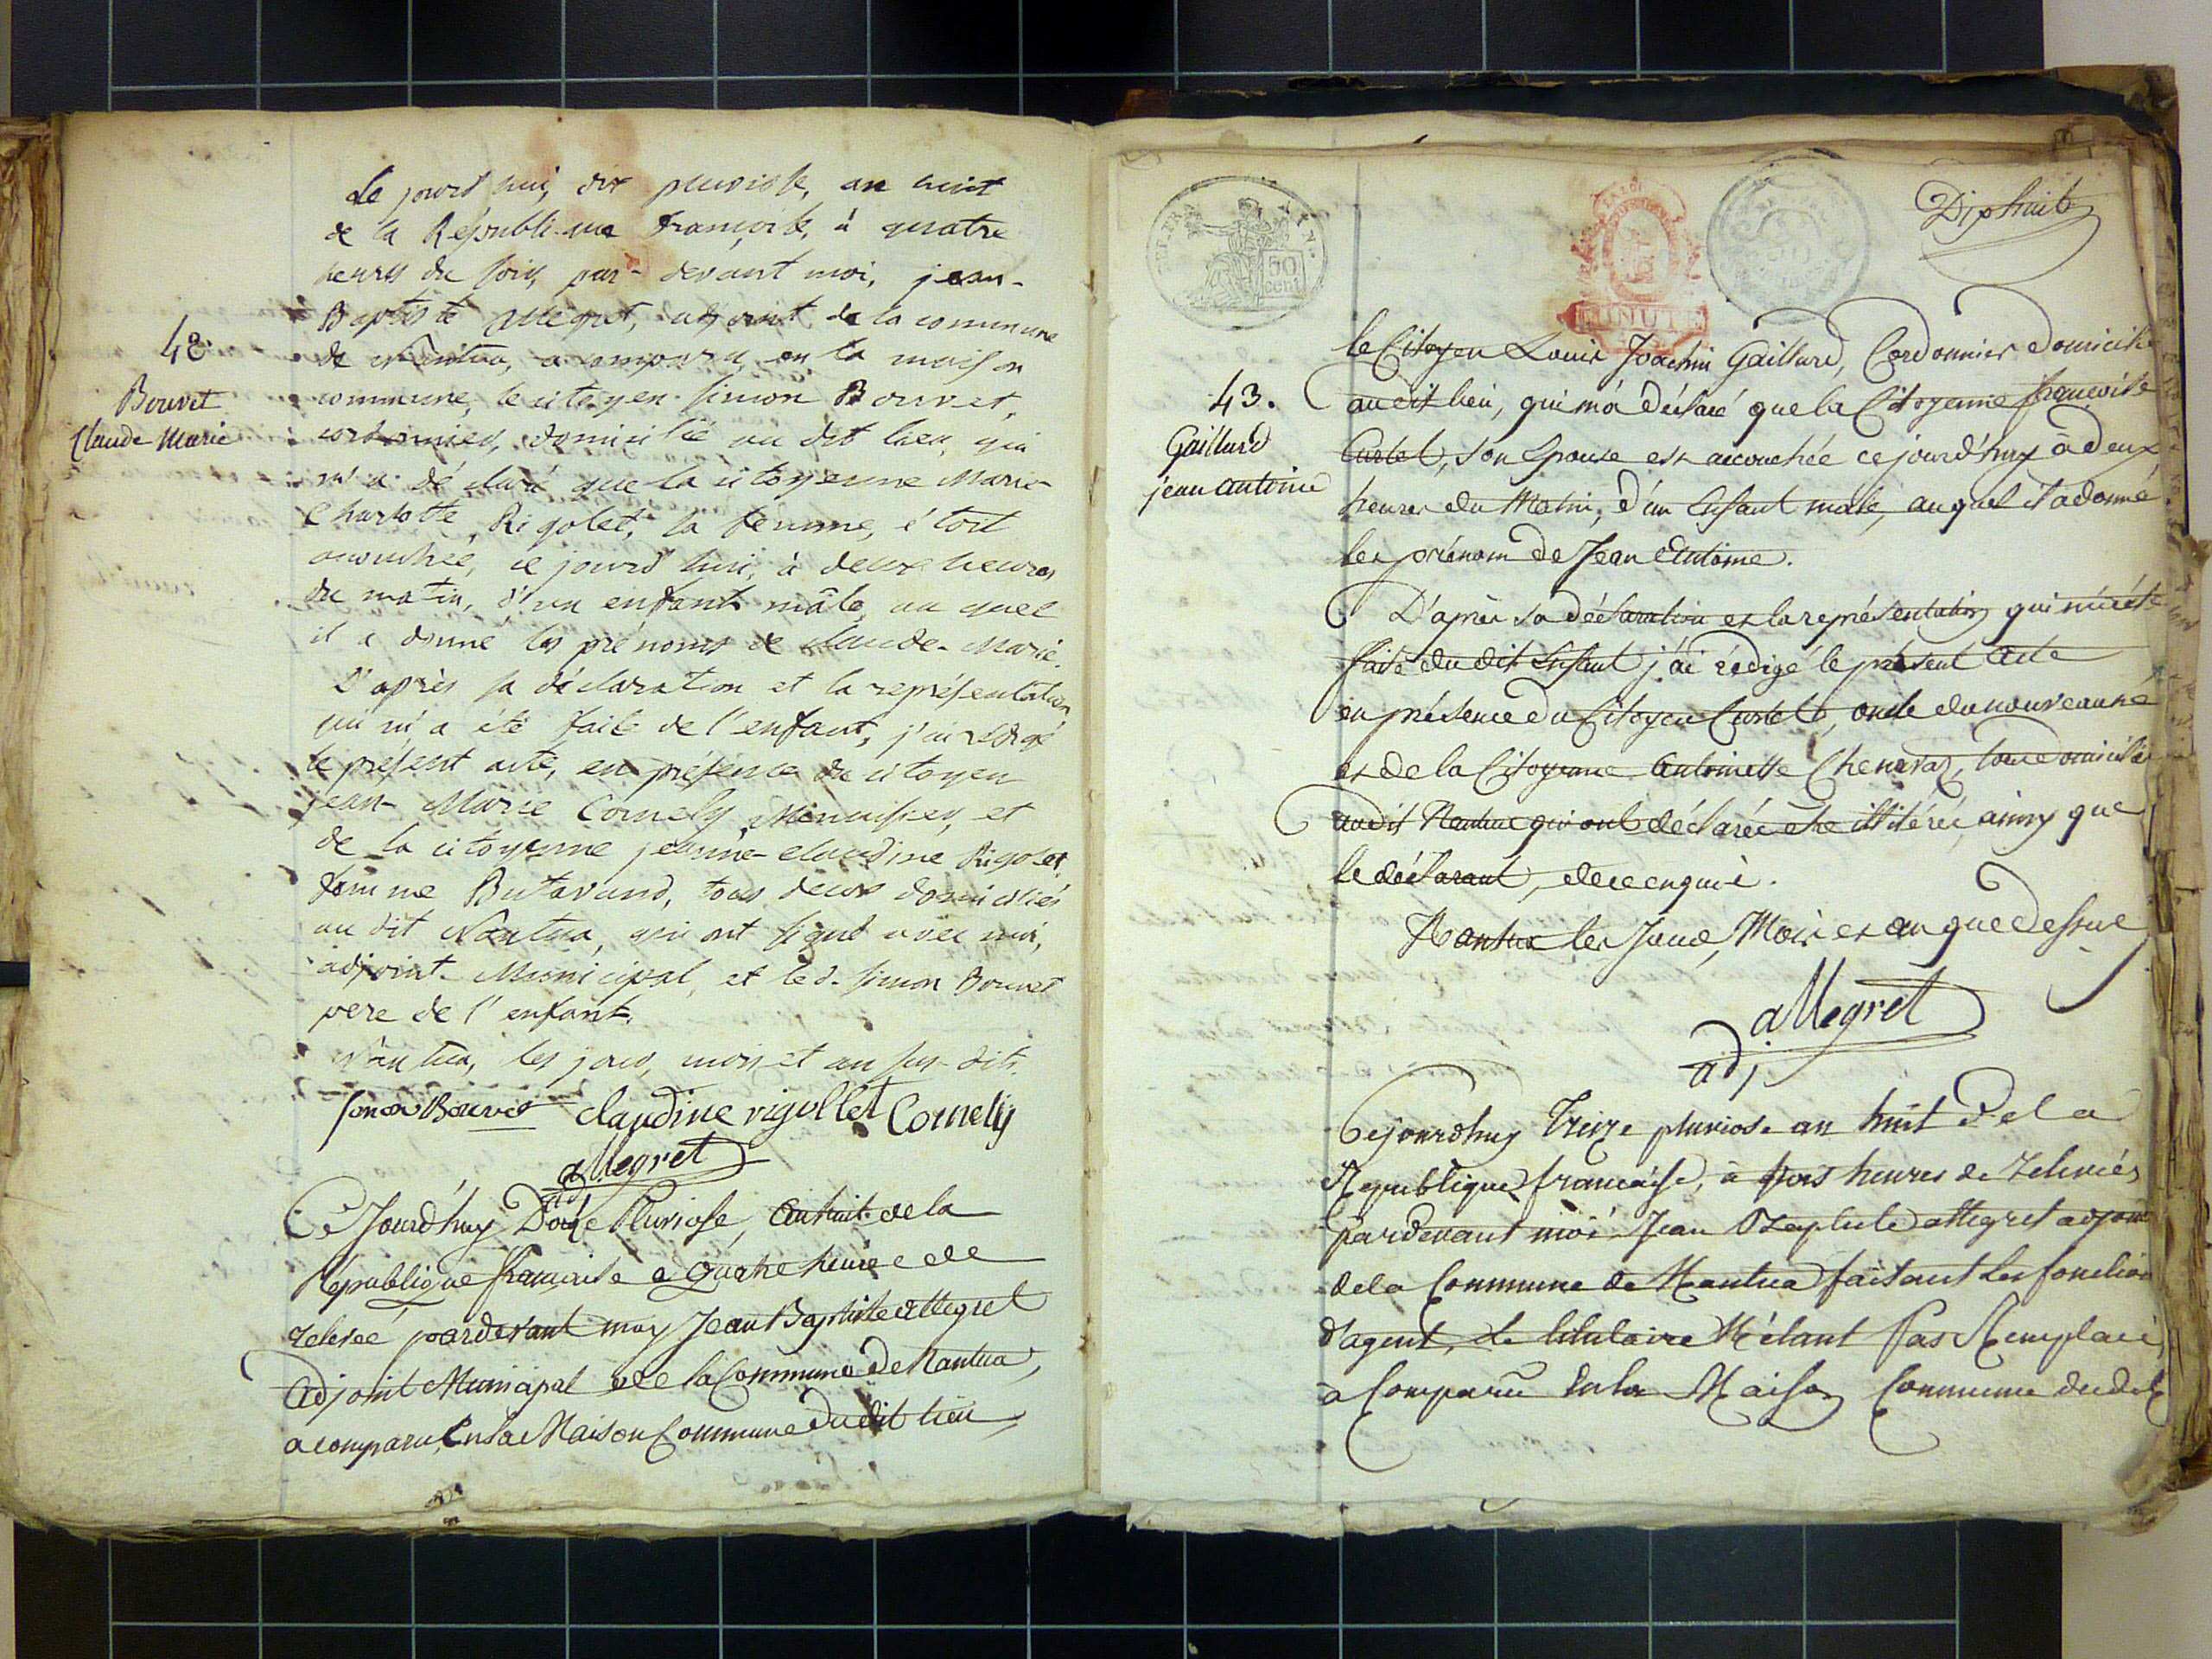 Ce jourd'hui, dix pluviose, an huit
de la République françoise, à quatre
heures du soir, par-devant moi, jean-
Baptiste allegret, adjoint de la commune
de Nantua, a comparu, en la maison
commune, le citoyen simon Bouvet,
cordonnier, domicilié au dit lieu, qui
m'a déclaré que la citoyenne Marie-
Charlotte Rigolet, sa femme, étoit
accouchée, ce jourd'hui, à deux heures
du matin, d'un enfant mâle, au quel
il a donné les prénoms de claude-Marie.
D'après sa déclaration et la représentation
qui m'a été faite de l'enfant, j'ai rédigé
le présent acte, en présence du citoyen
jean-Marie Cornely, Menuisier, et
de la citoyenne jeanne-claudine Rigolet
femme Butavand, tous deux domiciliés
au dit Nantua, qui ont signé avec moi,
adjoint-Municipal, et le d. simon Bouvet
pere de l'enfant.
Nantua, les jour, mois et an sus-dits.
48
Bouvet
Claude Marie
simon Bouvet claudine rigollet Cornely
allegret
adj
Ce Jourd'huy Douze Pluviose, an huit de la
République françoise a quatre heures de
relevée pardevant moy Jean Baptiste allegret
adjoint Municipal de la Commune de Nantua,
a comparu, en la Maison Commune du dit lieu,
50
cent
MINUTE
Dix huit
43.
Gaillard
jean antoine
le Citoyen Louis Joachin Gaillard, Cordonnier Domicilié
au dit lieu, qui m'a déclaré que la Citoyenne françoise
Curtet, son Epouse est accouchée ce jourd'huy à deux
heures du Matin, d'un Enfant male, auquel il a donné
les prénom de Jean Antoine.
D'après sa déclaration et la représentation qui m'a été
faite du dit Enfant j'ai rédigé le présent acte
en présence du Citoyen Curtet, oncle du nouveau né
et de la Citoyenne Antoinette Chenavaz, tous domiciliés
au dit Nantua qui ont déclarée etre illitérés, ainsy que
le déclarant, de ce enquis.
Nantua les Jour, Mois et an que dessus
allegret
adj
Ce jourdhuy Treize pluviose an huit de la
Republique francaise, à trois heures de relevée
pardevant moi Jean Baptiste allegret adjoint
de la Commune de Nantua faisant les fonction
d'agent, le titulaire N'étant pas Remplacé,
à Comparu en la Maison Commune dudit